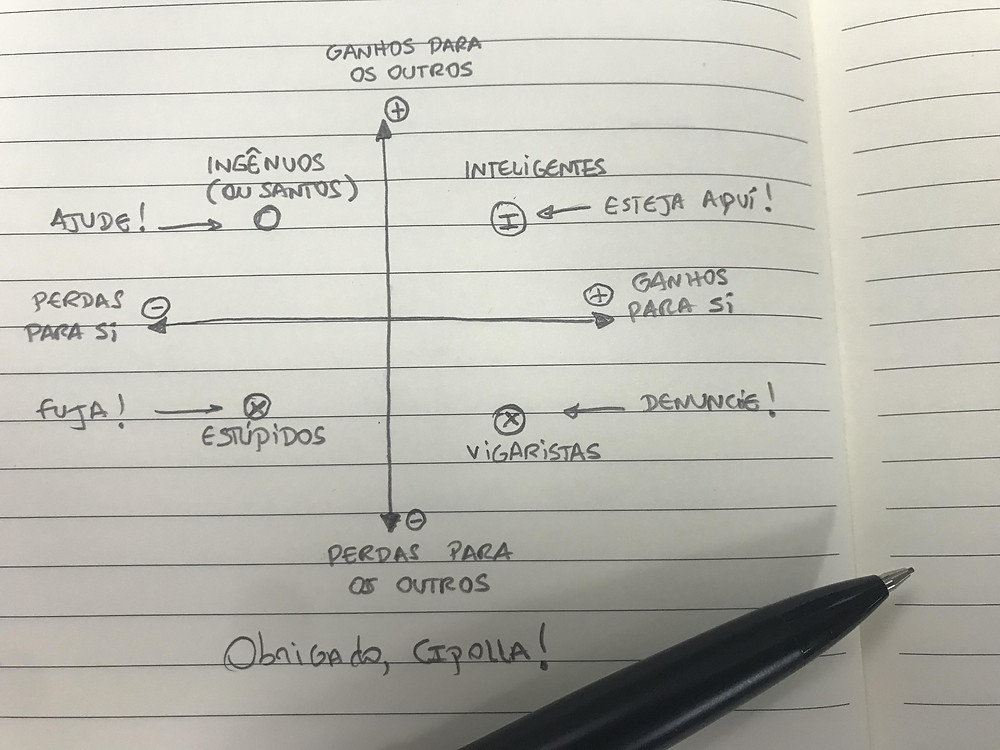 GANHOS PARA
OS OUTROS
+
INGÊNUOS
(OU SANTOS)
INTELIGENTES
AJUDE!
I
ESTEJA AQUÍ!
PERDAS
PARA SI
-
+
GANHOS
PARA SI
FUJA!
X
ESTÚPIDOS
X
DENUNCIE!
VIGARISTAS
-
PERDAS PARA
OS OUTROS
Obrigado, CIPOLLA!